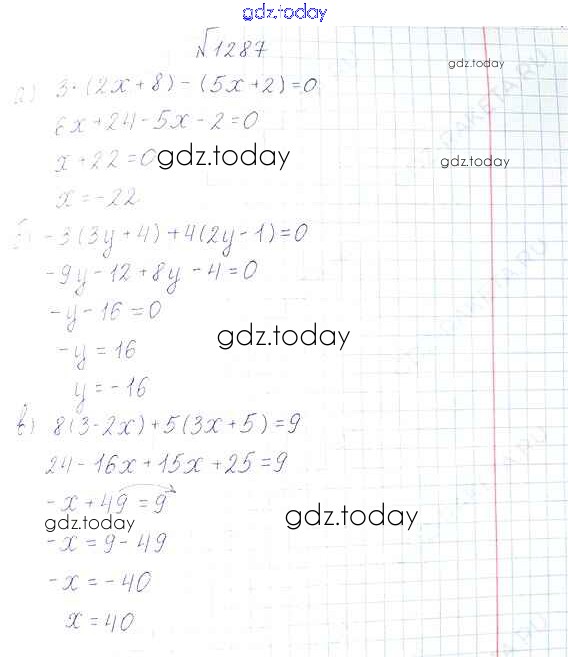 gdz.today
№1287
gdz.today
а) 3·(2x+8)-(5x+2)=0
6x+24-5x-2=0
x+22=0 gdz.today
gdz.today
x=-22
б) -3(3y+4)+4(2y-1)=0
-9y-12+8y-4=0
-y-16=0
gdz.today
-y=16
y=-16
в) 8(3-2x)+5(3x+5)=9
24-16x+15x+25=9
-x+49=9
gdz.today
gdz.today
-x=9-49
-x=-40
x=40